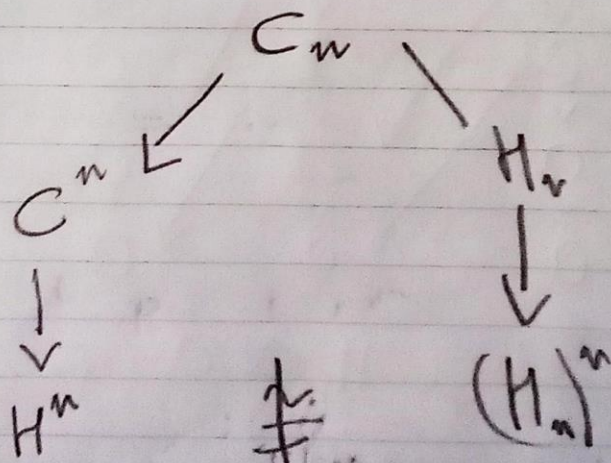 Cₙ
Cⁿ Hₙ
Hⁿ ≇ (Hₙ)ⁿ